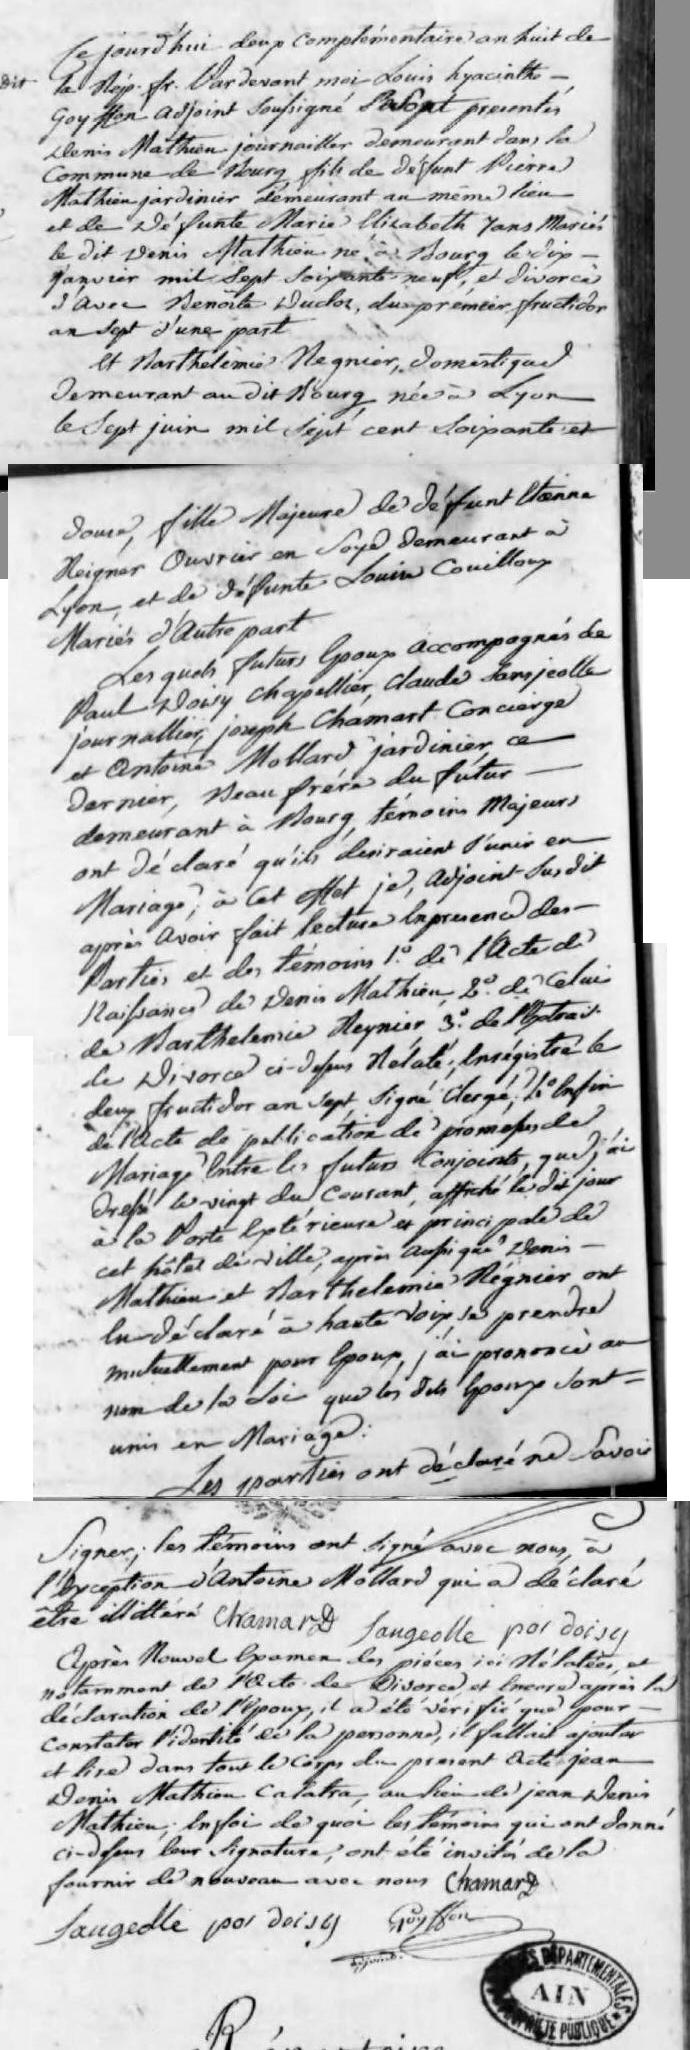 Ce jourd'hui deux complémentaire an huit de
dit
la Rép. fr. Pardevant moi Louis hyacinthe
Goyffon adjoint soussigné présentés
Denis Mathieu journaillier demeurant dans la
Commune de Bourg fils de défunt Pierre
Mathieu jardinier demeurant au même lieu
et de défunte Marie Elizabeth Jans Mariés
le dit Denis Mathieu né à Bourg le dix
janvier mil sept soixante neuf, et divorcé
d'avec Benoîte Ducloz, du premier fructidor
an sept d'une part
Et Barthelemie Regnier, domestique
demeurant au dit Bourg née à Lyon
le sept juin mil sept cent soixante et
douze, fille Majeure de défunt Etienne
Reignér Ouvrier en Soye demeurant à
Lyon, et de défunte Louise Couilloux
Mariés d'Autre part
Lesquels futurs Epoux accompagnés de
Paul Doisy chapellier, Claude Sansjeolle
journallier, joseph Chamart Concierge
et Antoine Mollard jardinier, ce
dernier, Beau frére du futur
demeurant à Bourg, témoins Majeurs
ont déclaré qu'ils désiraient s'unir en
Mariage; à Cet effet je, adjoint susdit
après avoir fait lecture Enpresence des
Parties et des témoins 1.º de l'Acte de
Naissance de Denis Mathieu, 2.º de Celui
de Barthelemie Reynier 3.º de l'Extrait
de Divorce ci-dessus Rélaté; Enrégistré le
deux fructidor an sept signé Clergé; 4.º Enfin
de l'Acte de publication de promesses de
Mariage Entre les futurs Conjoints, que j'ai
dressé le vingt du Courant, affiché le dit jour
à la Porte Extérieure et principale de
cet hôtel de ville, après aussi que Denis
Mathieu et Barthelemie Régnier ont
Eu déclaré à haute voix se prendre
mutuellement pour Epoux, j'ai prononcé au
nom de la Loi que les dits Epoux sont
unis en Mariage:
Les parties ont déclaré ne Savoir
Signer; les témoins ont signé avec nous, à
l'Exception d'Antoine Mollard qui a déclaré
être illittéré Chamard Saugeolle pos doisy
Après Nouvel Examen les piéces ici Rélatées, et
notamment de l'Acte de Divorce et Encore après la
déclaration de l'Epoux, il a été vérifié que pour
Constater l'identité de la personne, il fallait ajouter
et lire dans tout le Corps du present Acte jean
Denis Mathieu Calatra, au lieu de jean Denis
Mathieu; Enfoi de quoi les témoins qui ont donné
ci-dessus leur signature, ont été invités de la
fournir de nouveau avec nous Chamard
Saugeolle pos doisy Goyffon
adjoint
ARCHIVES DÉPARTEMENTALES
AIN
PROPRIÉTÉ PUBLIQUE
Répertoire